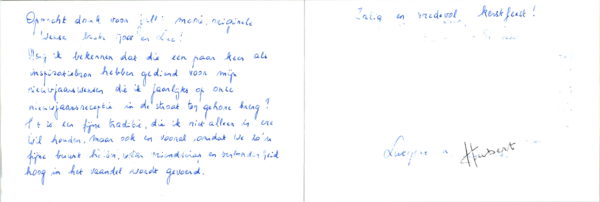 Oprecht dank voor jullie mooie, originele
wense beste Joos en Lea!
Mag ik bekennen dat die een paar keer als
inspiratiebron hebben gediend voor mijn
nieuwjaarswensen die ik jaarlijks op onze
nieuwjaarsreceptie in de straat ten gehore breng?
Het is een fijne traditie, die ik niet alleen in ere
wil houden, maar ook en vooral omdat we zo'n
fijne buurt hebben, waar vriendschap en verbondenheid
hoog in het vaandel wordt gevoerd.
Zalig en vredevol kerstfeest!
Hubert